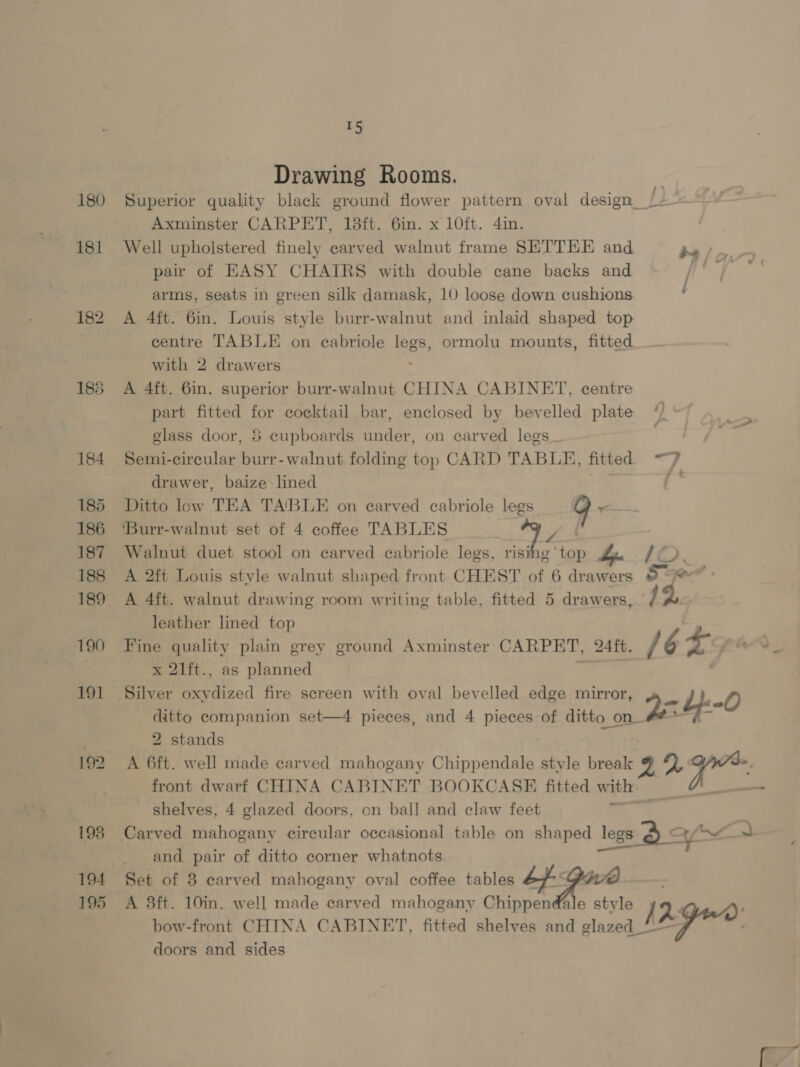 15
Drawing Rooms.
180 Superior quality black ground flower pattern oval design
Axminster CARPET, 13ft. 6in. x 10ft. 4in.
181 Well upholstered finely carved walnut frame SETTEE and
pair of EASY CHAIRS with double cane backs and
arms, seats in green silk damask, 10 loose down cushions
182 A 4ft. 6in. Louis style burr-walnut and inlaid shaped top
centre TABLE on cabriole legs, ormolu mounts, fitted
with 2 drawers
183 A 4ft. 6in. superior burr-walnut CHINA CABINET, centre
part fitted for cocktail bar, enclosed by bevelled plate
glass door, 3 cupboards under, on carved legs
184 Semi-circular burr-walnut folding top CARD TABLE, fitted
drawer, baize lined
185 Ditto low TEA TABLE on carved cabriole legs 9
186 Burr-walnut set of 4 coffee TABLES
187 Walnut duet stool on carved cabriole legs, rising top 10
188 A 2ft Louis style walnut shaped front CHEST of 6 drawers
189 A 4ft. walnut drawing room writing table, fitted 5 drawers, 12
leather lined top
190 Fine quality plain grey ground Axminster CARPET, 24ft.
x 21ft., as planned
191 Silver oxydized fire screen with oval bevelled edge mirror,
ditto companion set—4 pieces, and 4 pieces of ditto on
2 stands
192 A 6ft. well made carved mahogany Chippendale style break 22 gns.
front dwarf CHINA CABINET BOOKCASE fitted with
shelves, 4 glazed doors, on ball and claw feet
193 Carved mahogany circular occasional table on shaped legs 3
and pair of ditto corner whatnots
194 Set of 3 carved mahogany oval coffee tables 4 gns
195 A 3ft. 10in. well made carved mahogany Chippendale style 12 gns
bow-front CHINA CABINET, fitted shelves and glazed
doors and sides